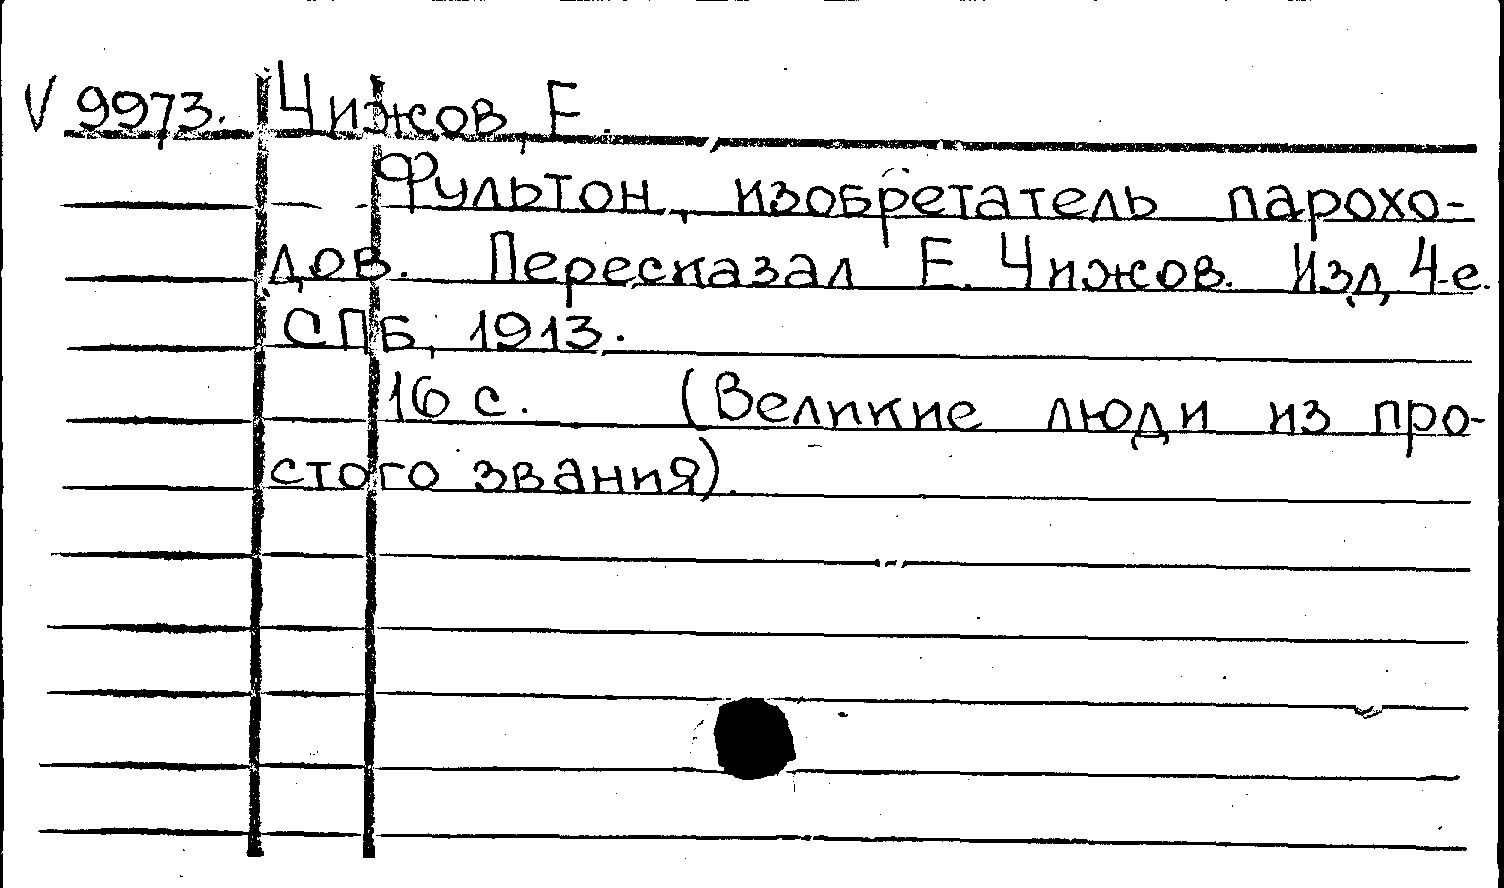 V 9973. Чижов, Е.
Фультон, изобретатель парохо-
дов. Пересказал Е. Чижов. Изд. 4-е.
СПБ, 1913.
16 с. (Великие люди из про-
стого звания).